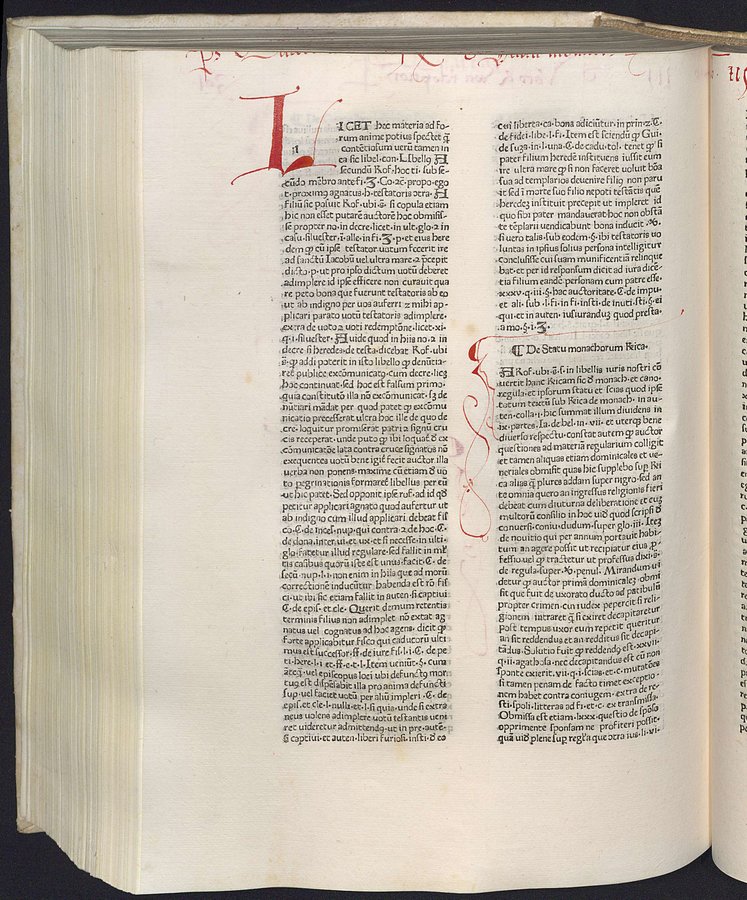 L
ICET hec materia ad fo-
rum anime potius spectet
contētiosum verū tamen in
ea sic libel·con·Libello
secundū Rof·hoc ti·sub se-
cūdo mēbro ante fi· Co·
t·proximꝯ agnatus·h·testatoris
filiū sic posuit Rof·ubi·s· si copula etiam
hic non esset putarē auctorē hoc obmisis-
se propter no·in decre·licet·in ult·glo·2 in
casu·siluester·
dem ꝙ cū ipse testator votum fecerit ire
ad sanctū Iacobū vel ultra mare·2 p̄cepit
dicto·p·ut pro ipso dictum votū deberet
adimplere id ipse efficere non curavit qua
re peto bona que fuerunt testatoris ab eo
ut ab indigno per vos auferri·2 mihi ap-
plicari parato votū testatoris adimplere·
extra de voto·2 voti redemptōne·licet·xi-
q·i·siluester· vide quod in hiis no·2 in
decre·si heredes·de testa·dicebat Rof·ubi
s·ꝙ addi poterit in isto libello ꝙ denūtia-
ret publice excōmunicatꝯ·cum decre·licꝫ
hoc contineat·sed hoc est falsum primo·
quia constitutō illa nō excōmunicat·sꝫ de
nūtiari mādat per quod patet ꝙ excōmu
nicatio precesserat ultra hoc ille de quo de
cre·loquitur promiserat patri 2 signū cru
cis receperat·unde puto ꝙ ibi loquat᷑ d' ex
cōmunicatōe lata contra cruce signatos nō
exequentes votū bene igit᷑ fecit auctor illa
verba non ponens·maxime cū etiam d' vo
to pegrinationis formaret libellus per eū
ut hic patet·Sed opponit ipse rof·ad id qd'
petitur applicari agnato quod aufertur ut
ab indigno cum illud applicari debeat fis
co·C·de inces·nup·qui contra·2 de hoc·C·
de dona·inter·vi·et ux·et si necesse·in ulti·
glo·fatetur illud regulare·sed fallit in ml'-
tis casibus quorū iste est unus·facit·C·de·
secū·nup·l·i·non enim in hiis que ad morū
correctionē inducūtur·habenda est rō fis-
ci·ut ibi sic etiam fallit in auten·si captivi·
C·de epis·et cle·Querit demum retentis
terminis filius non adimplet nō extat ag
natus vel cognatus ad hoc agens·dicit ꝙ
forte applicabitur fisco qui caducorū ulti
mus est successor·ff·de iure fis·l·i·C·de pe
ti·here·l·i·et·ff·e·t·l·Item veniūt·§·cum
acceꝙ·vel episcopus loci ubi defunctꝯ mor
tuꝯ est dispēsabit illa pro anima defuncti
sup·vel faciet votū per aliū impleri·C·de·
epis·et cle·l·nulli·et·l·si quis·unde si extra
neus volens adimplere votū testantis veni
ret videretur admittendꝯ·ut in pre·aute-
§ captivi·et auten·liberi furiosi·insti·d' eo
cui liberta·ca·bona adiciūtur·in prin·2·C·
de fidei·libe·l·fi·Item est sciendū ꝙ Gui·
de suza·in·l·una·C·de cadu·tol·tenet ꝙ si
pater filium heredē instituens iussit eum
ire ultra mare ꝙ si non faceret voluit bōa
sua ad templarios devenire filiꝯ non paru
it sed i morte suo filio nepoti testātis quē
heredeꝫ instituit precepit ut impleret id
quo sibi pater mandaverat hoc non obstā
te tēplarii vendicabunt bona inducit·
si vero talis·sub eodem·§·ibi testatoris vo
luntas in ipsius solius persona intelligitur
conclusisse cui suam munificentiā relinque
bat·et per id responsum dicit ad iura dicē-
tia filium eandē personam cum patre esse·
xxxv·q·iii·§·hac auctoritate·C·de impu·
et ali·sub·l·fi·in fi·insti·de inuti·sti·§·ei
qui·et in auten·iusiuranduꝫ quod presta-
a mo·§·i·
De Statu monachorum Rica·
Rof·ubi·s·in libellis iuris nostri cō
vertit hanc Ricam sic d' monach·et cano·
regula·et ipsorum statu et scias quod ipse
tatum textū sub Rica de monach·in au-
ten·colla·i·hic summat illum dividens in
ix·partes·Ia·de bel·in·vii·et uterqꝫ bene
diverso respectu·constat autem ꝙ auctor
questiones ad materiā regularium colligit
et tamen aliquas etiam dominicales et ve-
neriales obmisit quas hic supplebo sup Ri
ca alias ꝙ plures addam super nigro·sed an
te omnia quero an ingressus religionis fieri
debeat cum diuturna deliberatione et cuꝫ
multorū consilio in hoc vid' quod scripsi d'
conversi·coniu·duduum·super glo·iii·Iteꝫ
de novitio qui per annum portavit habi-
tum an agere possit ut recipiatur eius
fessio·vel ꝙ tractetur ut professus·dixi·
de regula·super·℞·penul·Mirandum vi
detur ꝙ auctor primā dominicaleꝫ obmi
sit que fuit de uxorato ducto ad patibulū
propter crimen·cui iudex pepercit si reli-
gionem intraret ꝙ si exiret decapitaretur
post tempus uxor eum repetit queritur
an sit reddendus et an redditus sit decapi-
tādus·Solutio fuit ꝙ reddendꝯ est·xxvii·
q·ii·agathosa·nec decapitandus est cū non
sponte exierit·vii·q·i·scias·et·c·mutatōes
si tamen penam de facto timet exceptio-
nem habet contra coniugem·extra de re-
sti·spoli·litteras·ad fi·et·c·ex transmissa·
Obmissa est etiam·lxxx·questio de spōso
opprimente sponsam ne profiteri possit·
quā vid' plene sup regl'a que otra ius·li·vi·